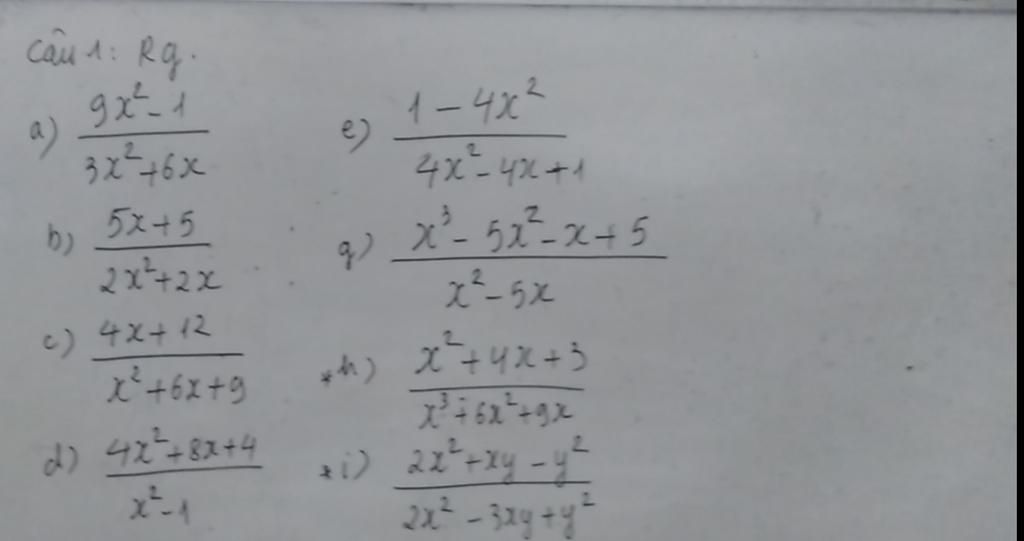 Câu 1: Rg.
a) \frac{9x^2-1}{3x^2+6x}
b) \frac{5x+5}{2x^2+2x}
c) \frac{4x+12}{x^2+6x+9}
d) \frac{4x^2+8x+4}{x^2-1}
e) \frac{1-4x^2}{4x^2-4x+1}
g) \frac{x^3-5x^2-x+5}{x^2-5x}
*h) \frac{x^2+4x+3}{x^3+6x^2+9x}
*i) \frac{2x^2+xy-y^2}{2x^2-3xy+y^2}